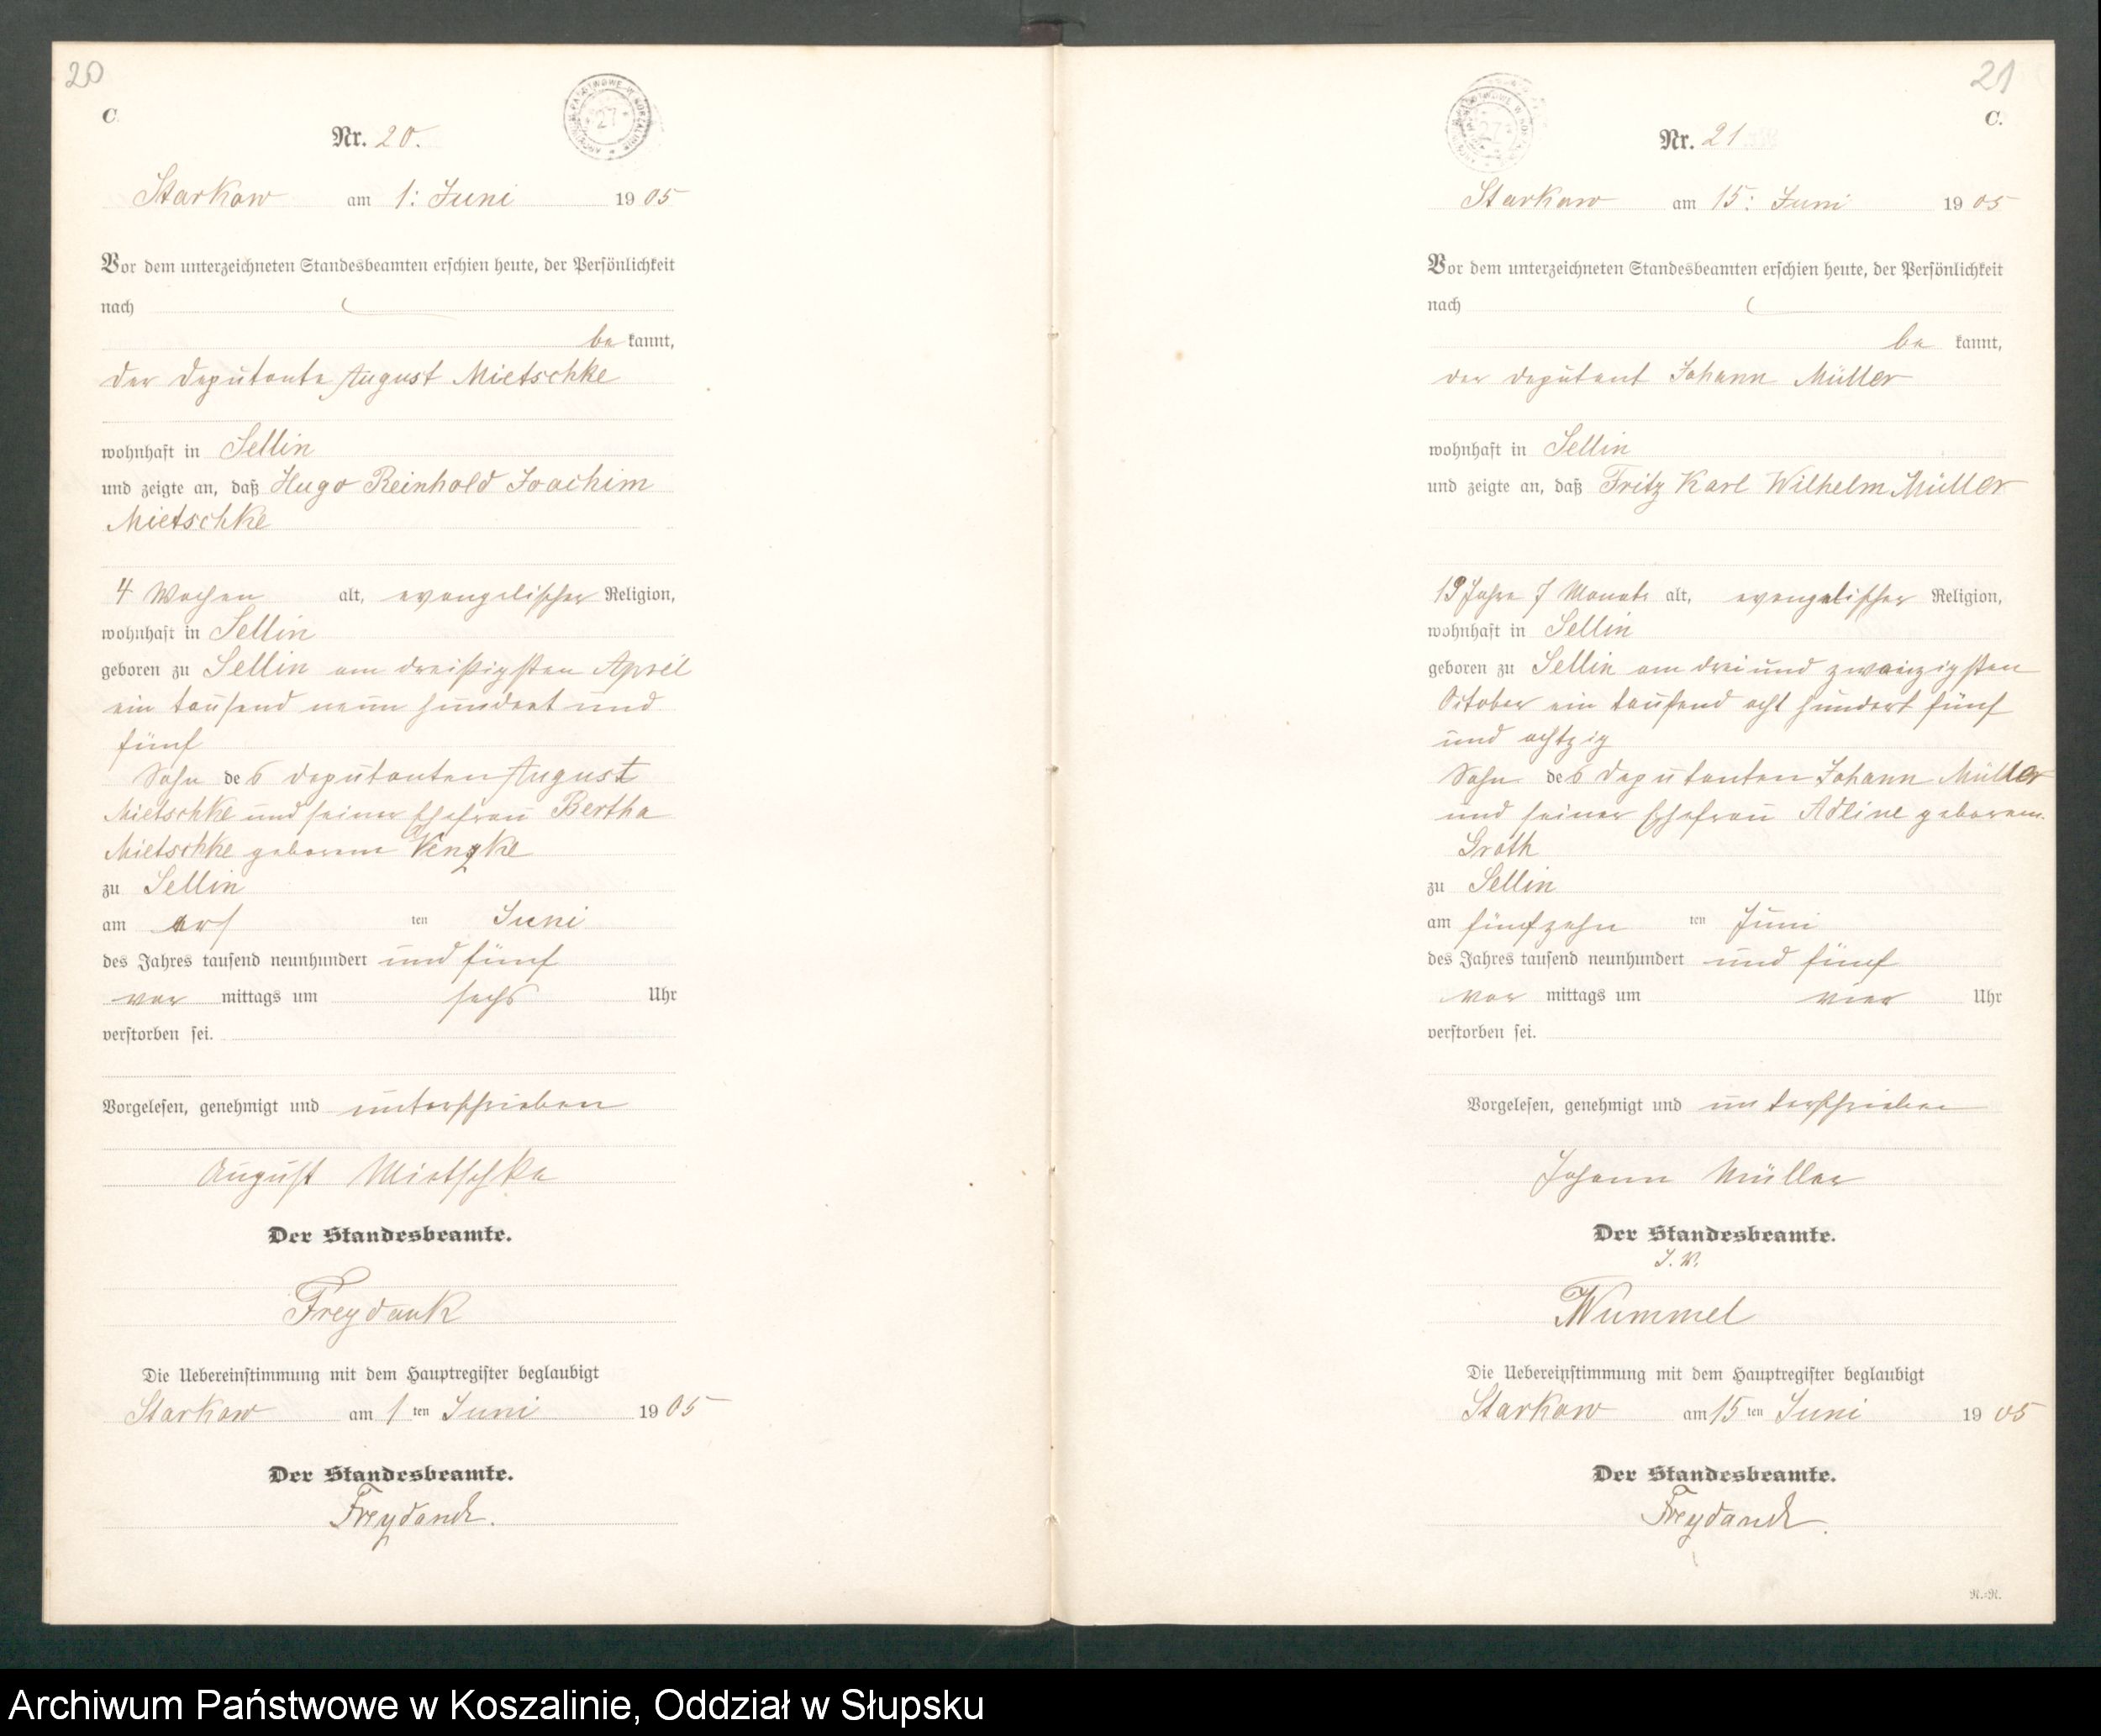 20
C.
Nr. 20.
Starkow am 1: Juni 1905
Vor dem unterzeichneten Standesbeamten erschien heute, der Persönlichkeit
nach
be kannt,
der Deputante August Mietschke
wohnhaft in Sellin
und zeigte an, daß Hugo Reinhold Joachim
Mietschke
4 Wochen alt, evangelischer Religion,
wohnhaft in Sellin
geboren zu Sellin am dreißigsten April
ein tausend neun hundert und
fünf
Sohn des Deputanten August
Mietschke und seiner Ehefrau Bertha
Mietschke geborene
zu Sellin
am ers ten Juni
des Jahres tausend neunhundert und fünf
vor mittags um sechs Uhr
verstorben sei.
Vorgelesen, genehmigt und unterschrieben
August Mietschke
Der Standesbeamte.
Freydank
Die Uebereinstimmung mit dem Hauptregister beglaubigt
Starkow am 1 ten Juni 1905
Der Standesbeamte.
Freydank.
21
C.
Nr. 21.
Starkow am 15: Juni 1905
Vor dem unterzeichneten Standesbeamten erschien heute, der Persönlichkeit
nach
be kannt,
der Deputant Johann Müller
wohnhaft in Sellin
und zeigte an, daß Fritz Karl Wilhelm Müller
19 Jahre 7 Monate alt, evangelischer Religion,
wohnhaft in Sellin
geboren zu Sellin am drei und zwanzigsten
October ein tausend acht hundert fünf
und achtzig
Sohn des Deputanten Johann Müller
und seiner Ehefrau Adline geborene
Groth
zu Sellin
am fünfzehn ten Juni
des Jahres tausend neunhundert und fünf
vor mittags um vier Uhr
verstorben sei.
Vorgelesen, genehmigt und unterschrieben
Johann Müller
Der Standesbeamte.
J. V.
Wummel
Die Uebereinstimmung mit dem Hauptregister beglaubigt
Starkow am 15 ten Juni 1905
Der Standesbeamte.
Freydank.
R.-R.
Archiwum Państwowe w Koszalinie, Oddział w Słupsku